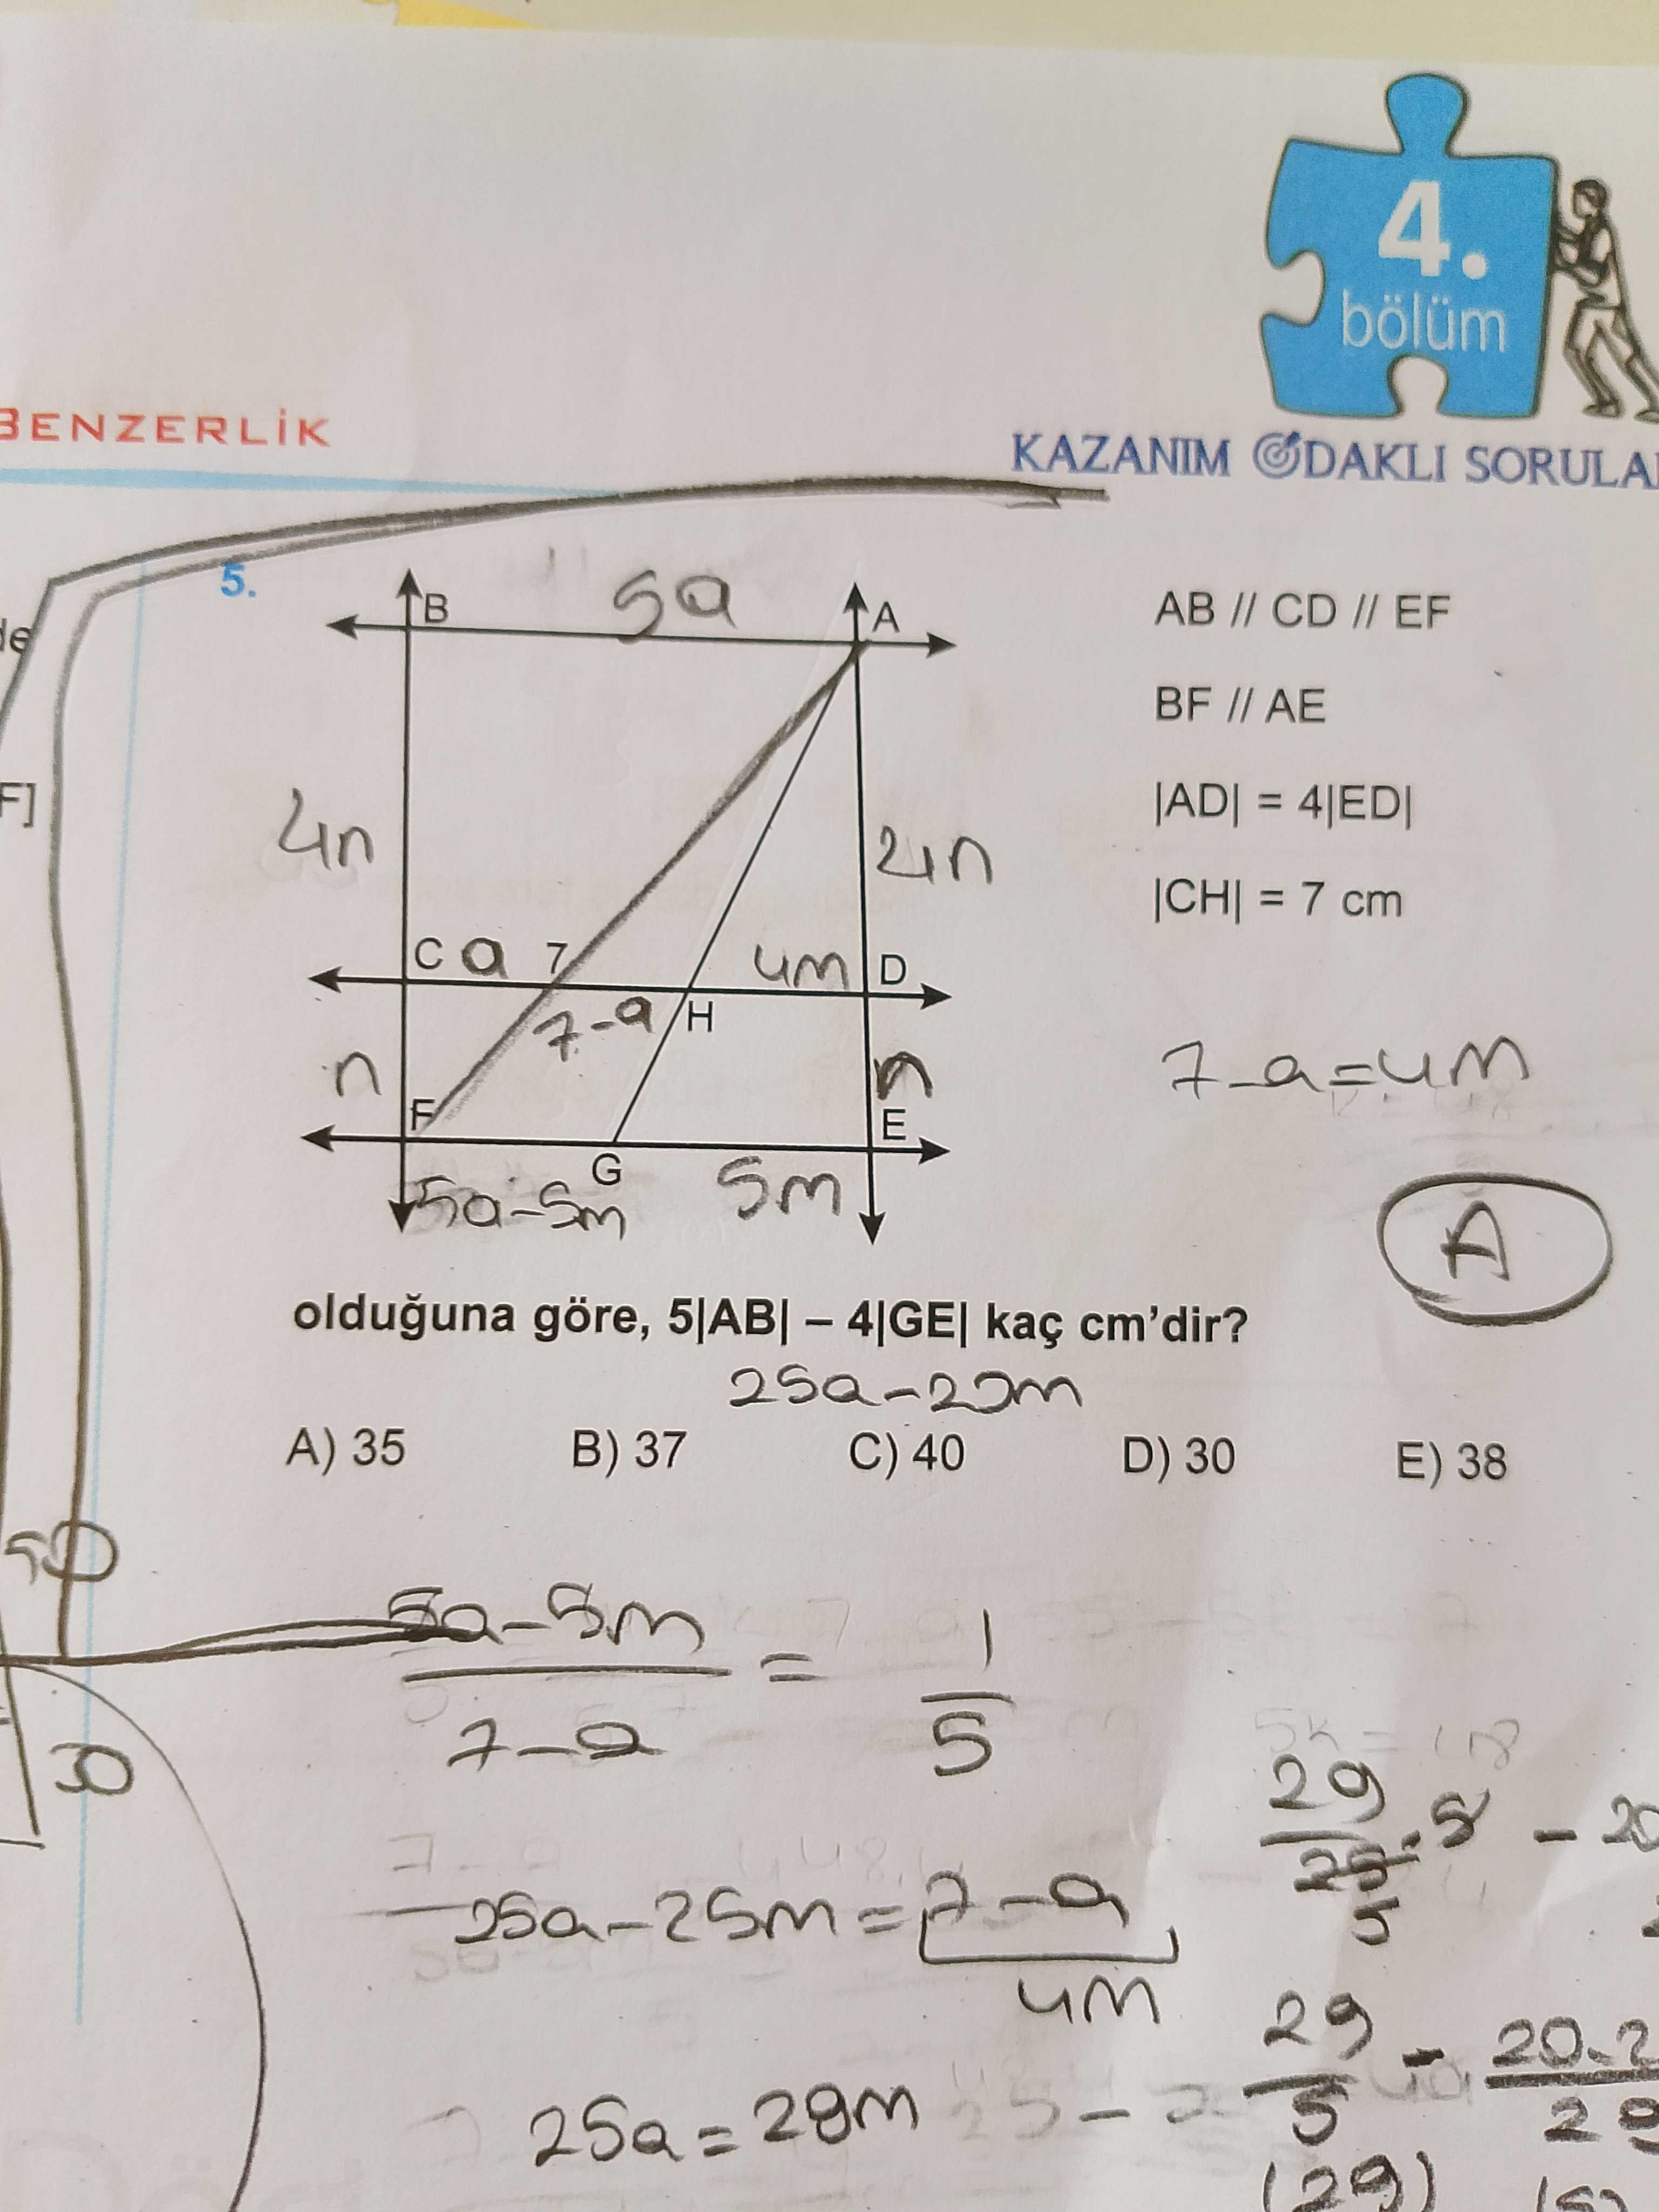 4.
bölüm
BENZERLİK
KAZANIM ODAKLI SORULAR
5.
B
5a
A
AB // CD // EF
BF // AE
|AD| = 4|ED|
|CH| = 7 cm
F]
4n
4n
C a 7
4m D
7-a H
n
n
7-a=4m
F
E
G
5a-5m
5m
A
olduğuna göre, 5|AB| – 4|GE| kaç cm'dir?
25a-20m
A) 35 B) 37 C) 40 D) 30 E) 38
5a-5m / 7-a = 1/5
30
25a-25m=7-a
4m
29/25 . 5 - 20
29/5 - 20.2/29
25a=29m
(29)